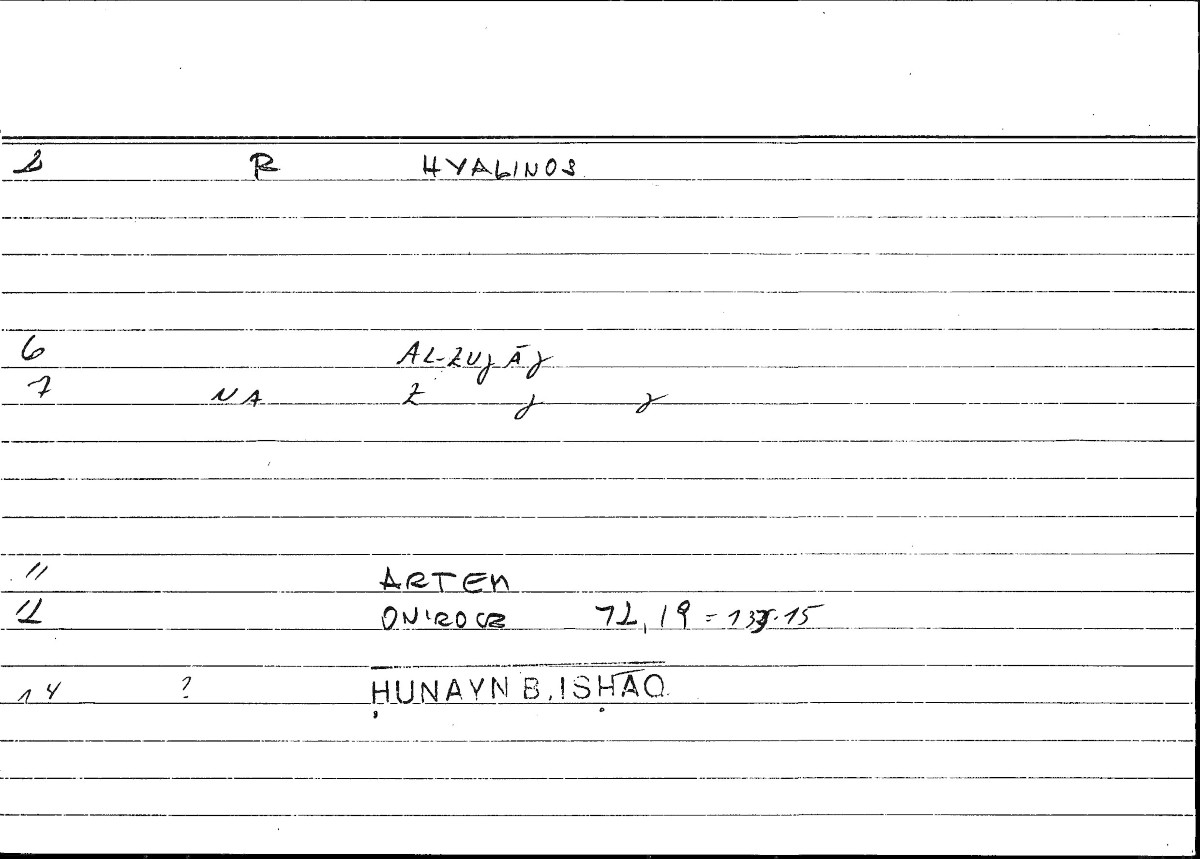 2 R HYALINOS
6 AL-ZUJĀJ
7 NA Z J J
11 ARTEM
12 ONIROCR 72,19 = 13 .15
14 ? ḤUNAYN B. ISḤĀQ